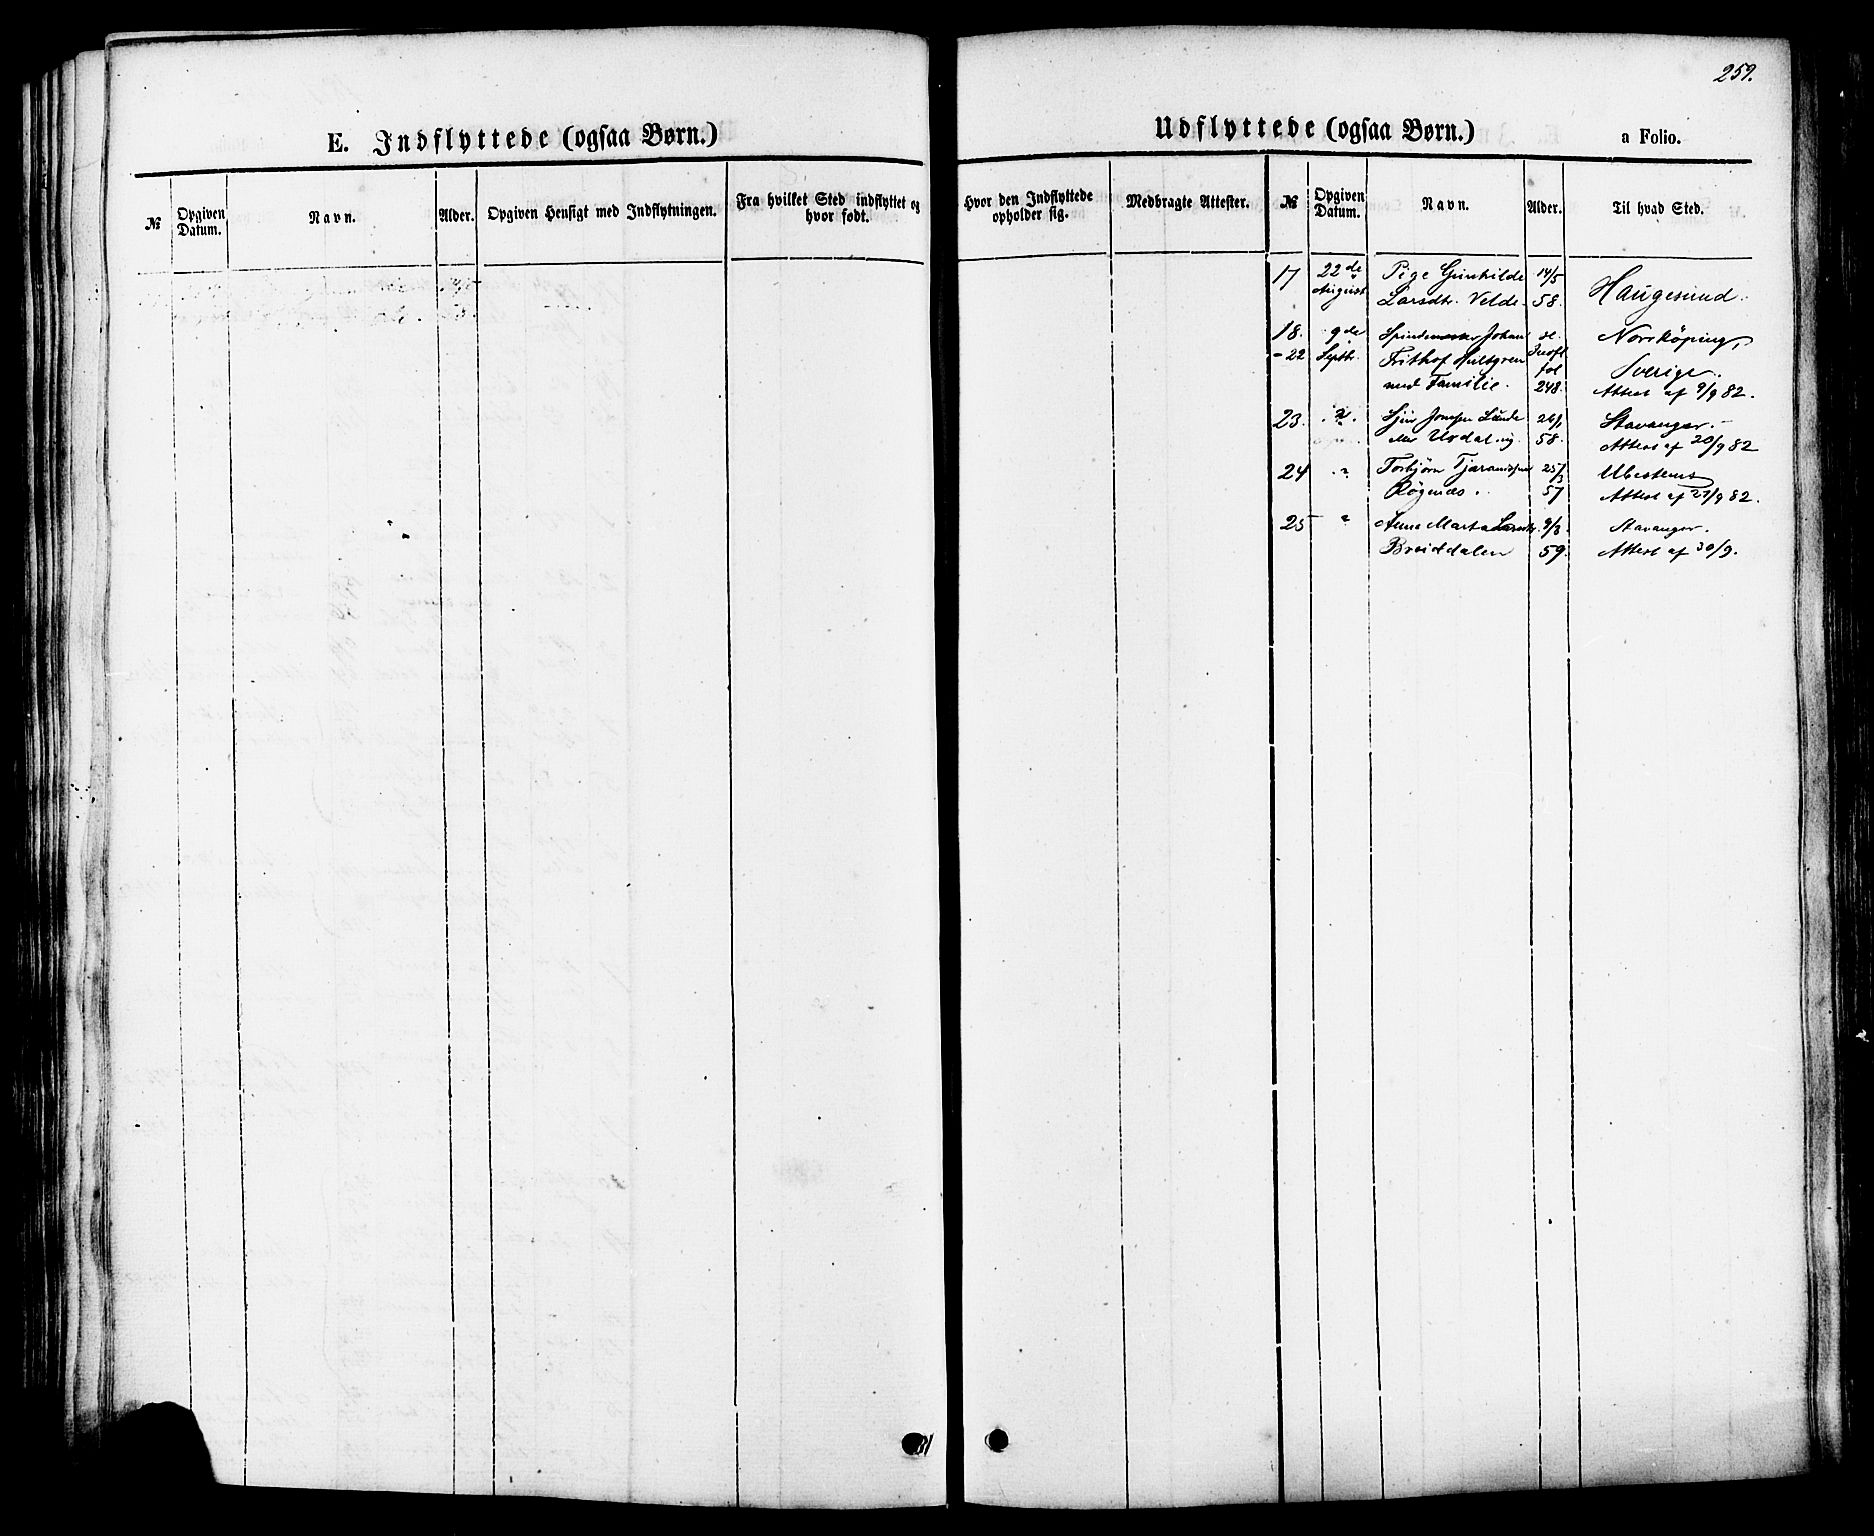 259.
E. Indflyttede (ogsaa Børn.)
№
Opgiven Datum.
Navn.
Alder.
Opgiven Hensigt med Indflytningen.
Fra hvilket Sted indflyttet og hvor født.
Udflyttede (ogsaa Børn.)
a Folio.
Hvor den Indflyttede opholder sig.
Medbragte Attester.
№
Opgiven Datum.
Navn.
Alder.
Til hvad Sted.
17 22de Pige Gunhilde 14/5
August Larsdtr. Velde. 58. Haugesund.
18. 9de Johan Norrköping,
-22 Septbr. Frithof Hultgren Indfl Sverige.
med Familie. fol 248. Attest af 9/9 82.
23. " Lunde 24/1 Stavanger.
58. Attest af 20/9 82
24 " Torbjørn 25/3 Ubestemt
Røgenæs. 57 Attest af 27/9 82.
25 " Anne Marta Larsdtr. 9/3 Stavanger.
Breiddalen 59. Attest af 30/9.